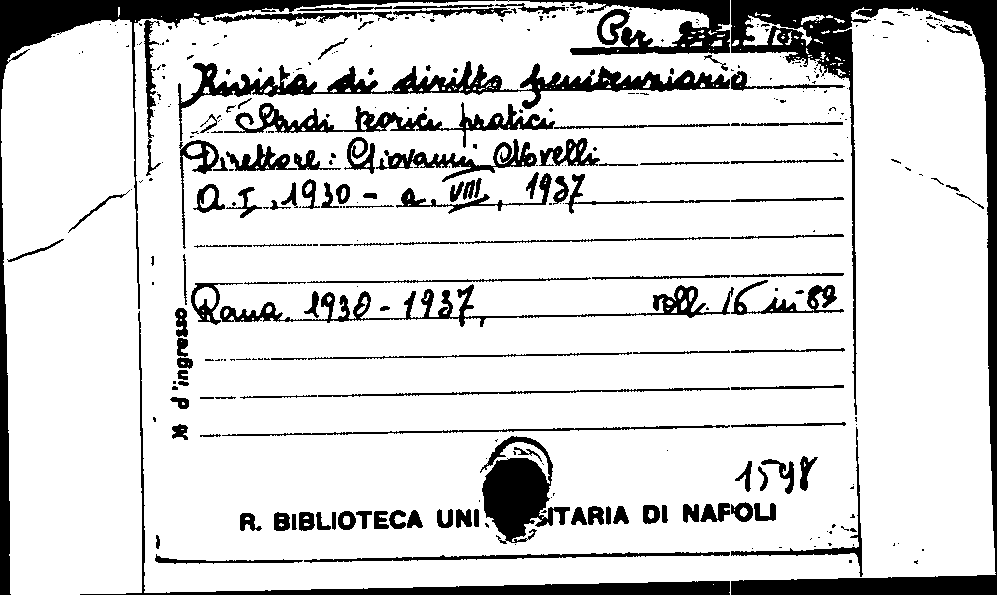 Per
Rivista di diritto penitenziario
Studi teorici pratici
Direttore: Giovanni Novelli
A. I, 1930 - a. VIII, 1937.
Roma. 1930-1937,
voll. 16 in-8º
№ d'ingresso
1598
R. BIBLIOTECA UNI SITARIA DI NAPOLI